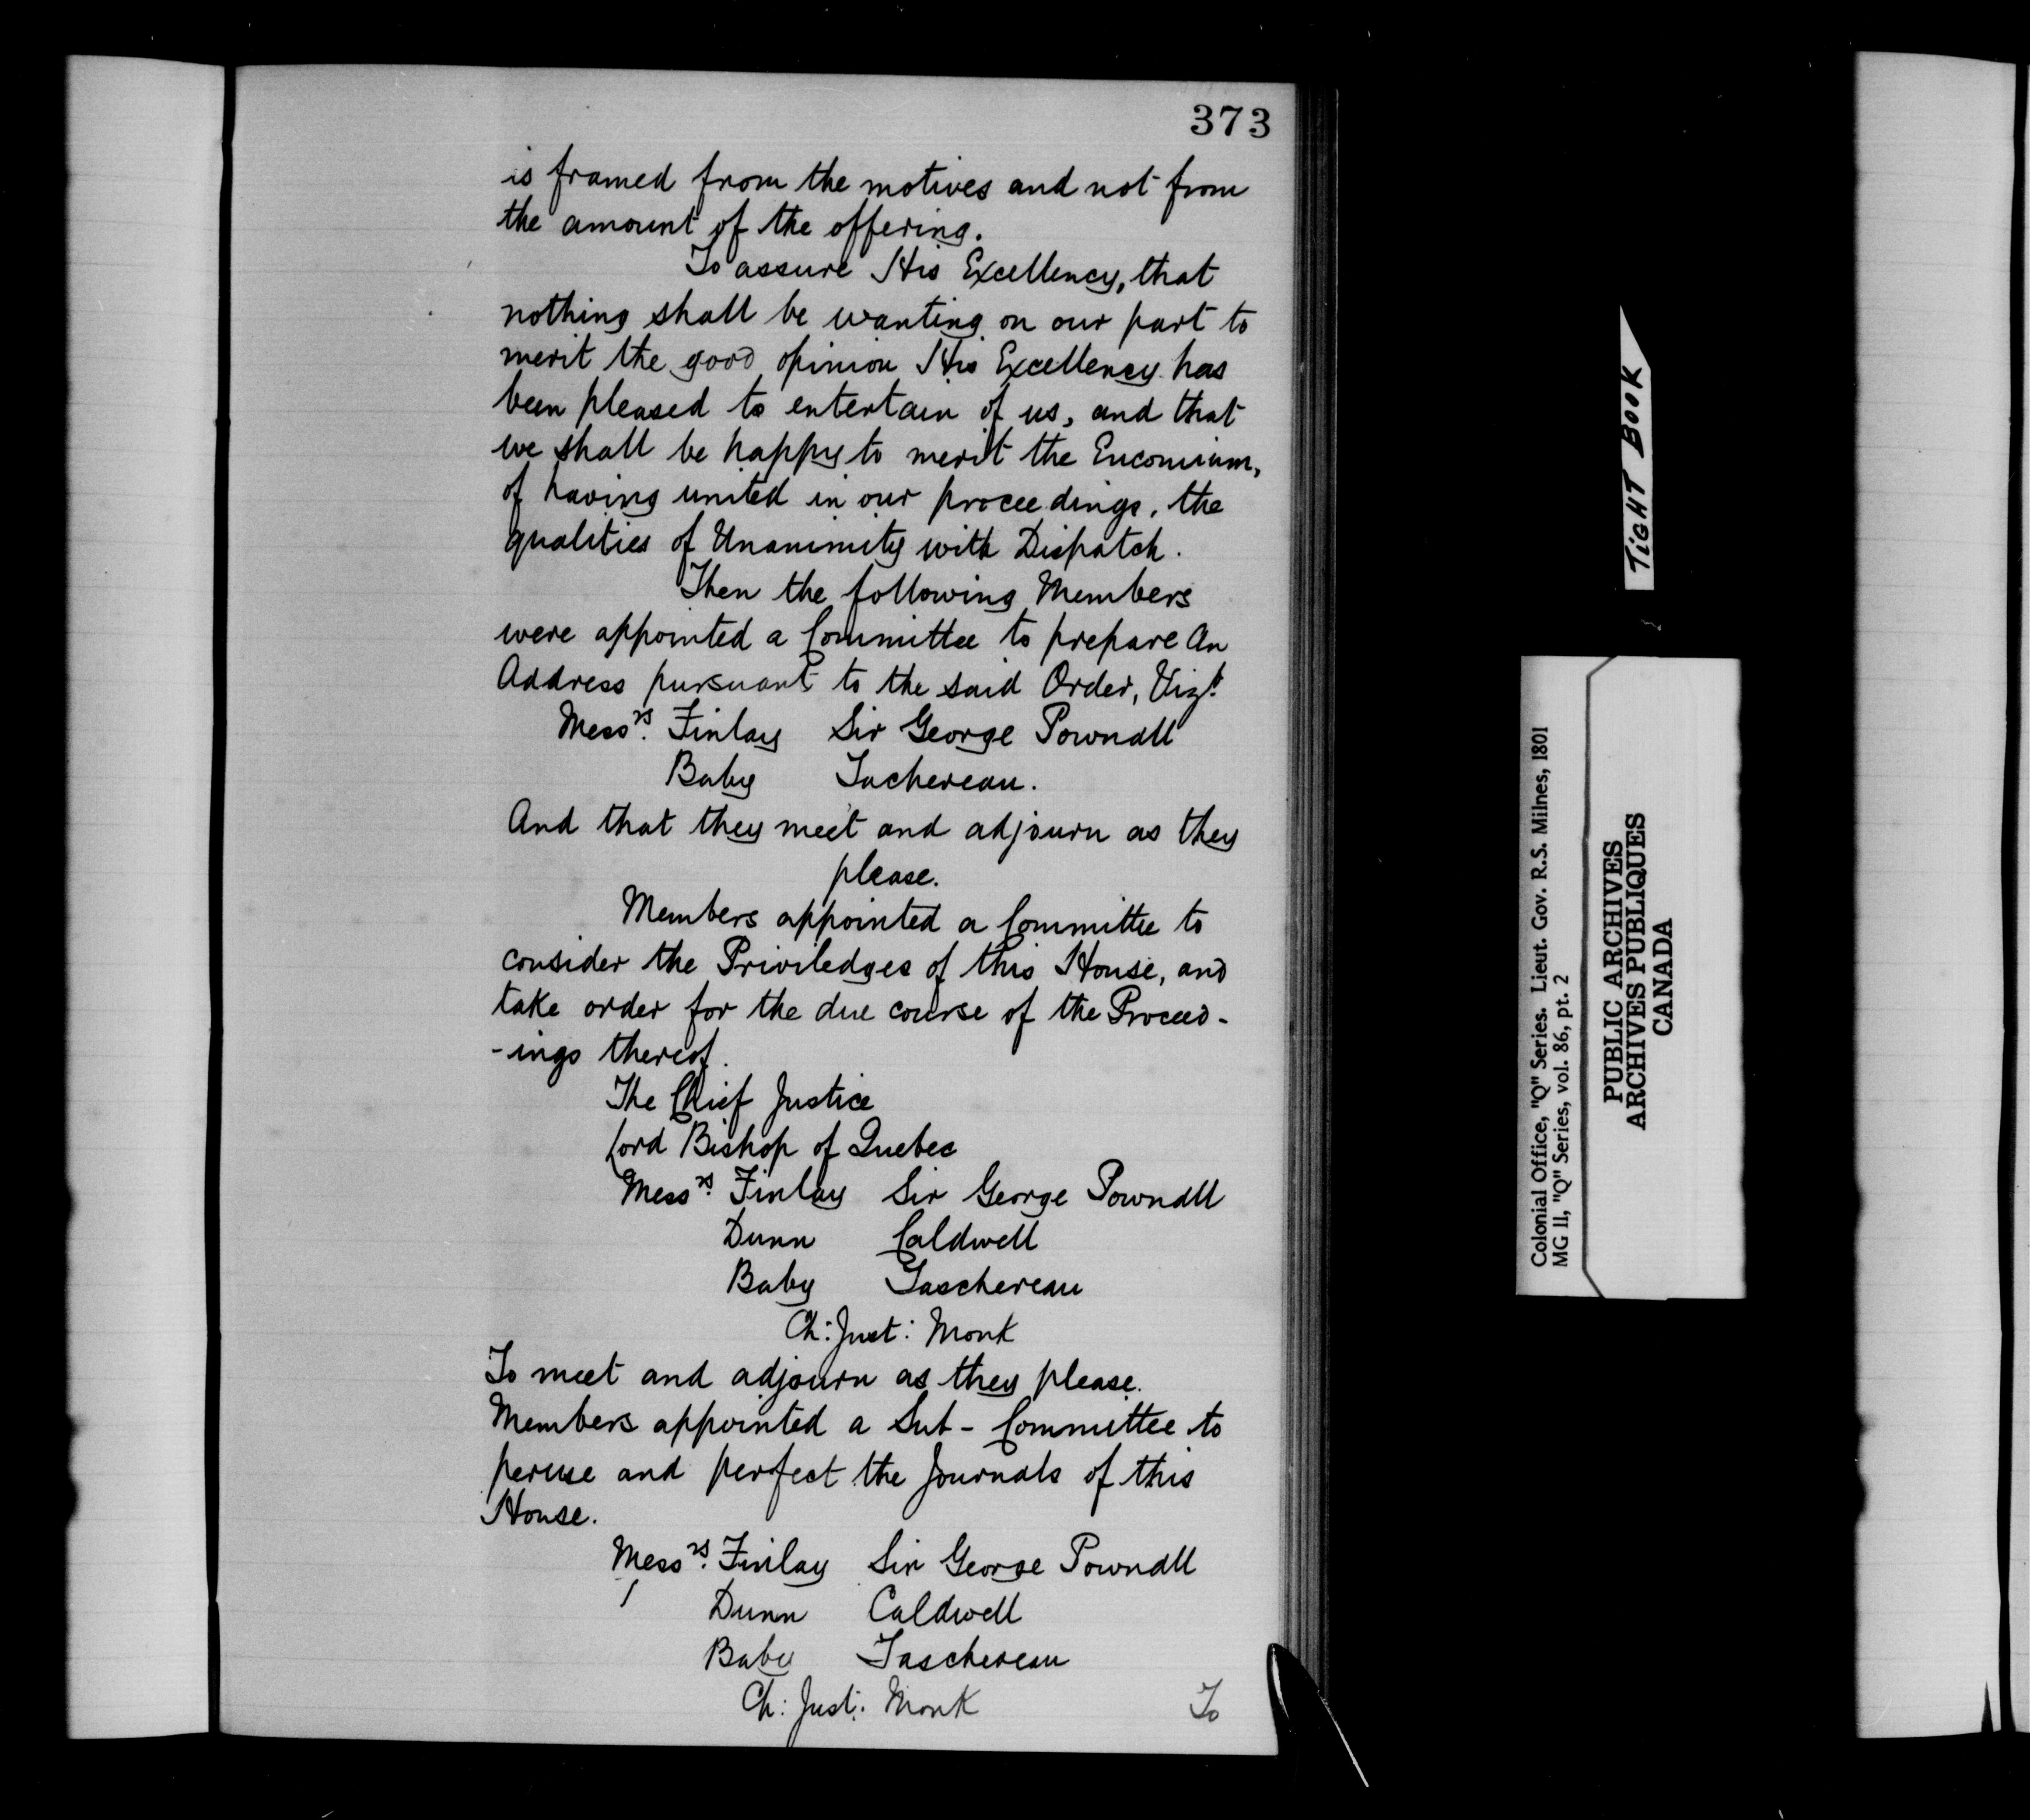 373
is framed from the motives and not from
the amount of the offering.
To assure His Excellency, that
nothing shall be wanting on our part to
merit the good opinion His Excellency has
been pleased to entertain of us, and that
we shall be happy to merit the Encomium,
of having united in our proceedings, the
qualities of Unanimity with Dispatch.
Then the following Members
were appointed a Committee to prepare An
Address pursuant to the said Order, Vizt.
Messrs. Finlay Sir George Pownall
Baby Tachereau.
And that they meet and adjourn as they
please.
Members appointed a Committee to
consider the Priviledges of this House, and
take order for the due course of the Proceed-
-ings thereof.
The Chief Justice
Lord Bishop of Quebec
Messrs. Finlay Sir George Pownall
Dunn Caldwell
Baby Taschereau
Ch: Just: Monk
To meet and adjourn as they please.
Members appointed a Sub-Committee to
peruse and perfect the Journals of this
House.
Messrs. Finlay Sir George Pownall
Dunn Caldwell
Baby Taschereau
Ch: Just: Monk
To
TIGHT BOOK
Colonial Office, "Q" Series. Lieut. Gov. R.S. Milnes, 1801
MG 11, "Q" Series, vol. 86, pt. 2
PUBLIC ARCHIVES
ARCHIVES PUBLIQUES
CANADA